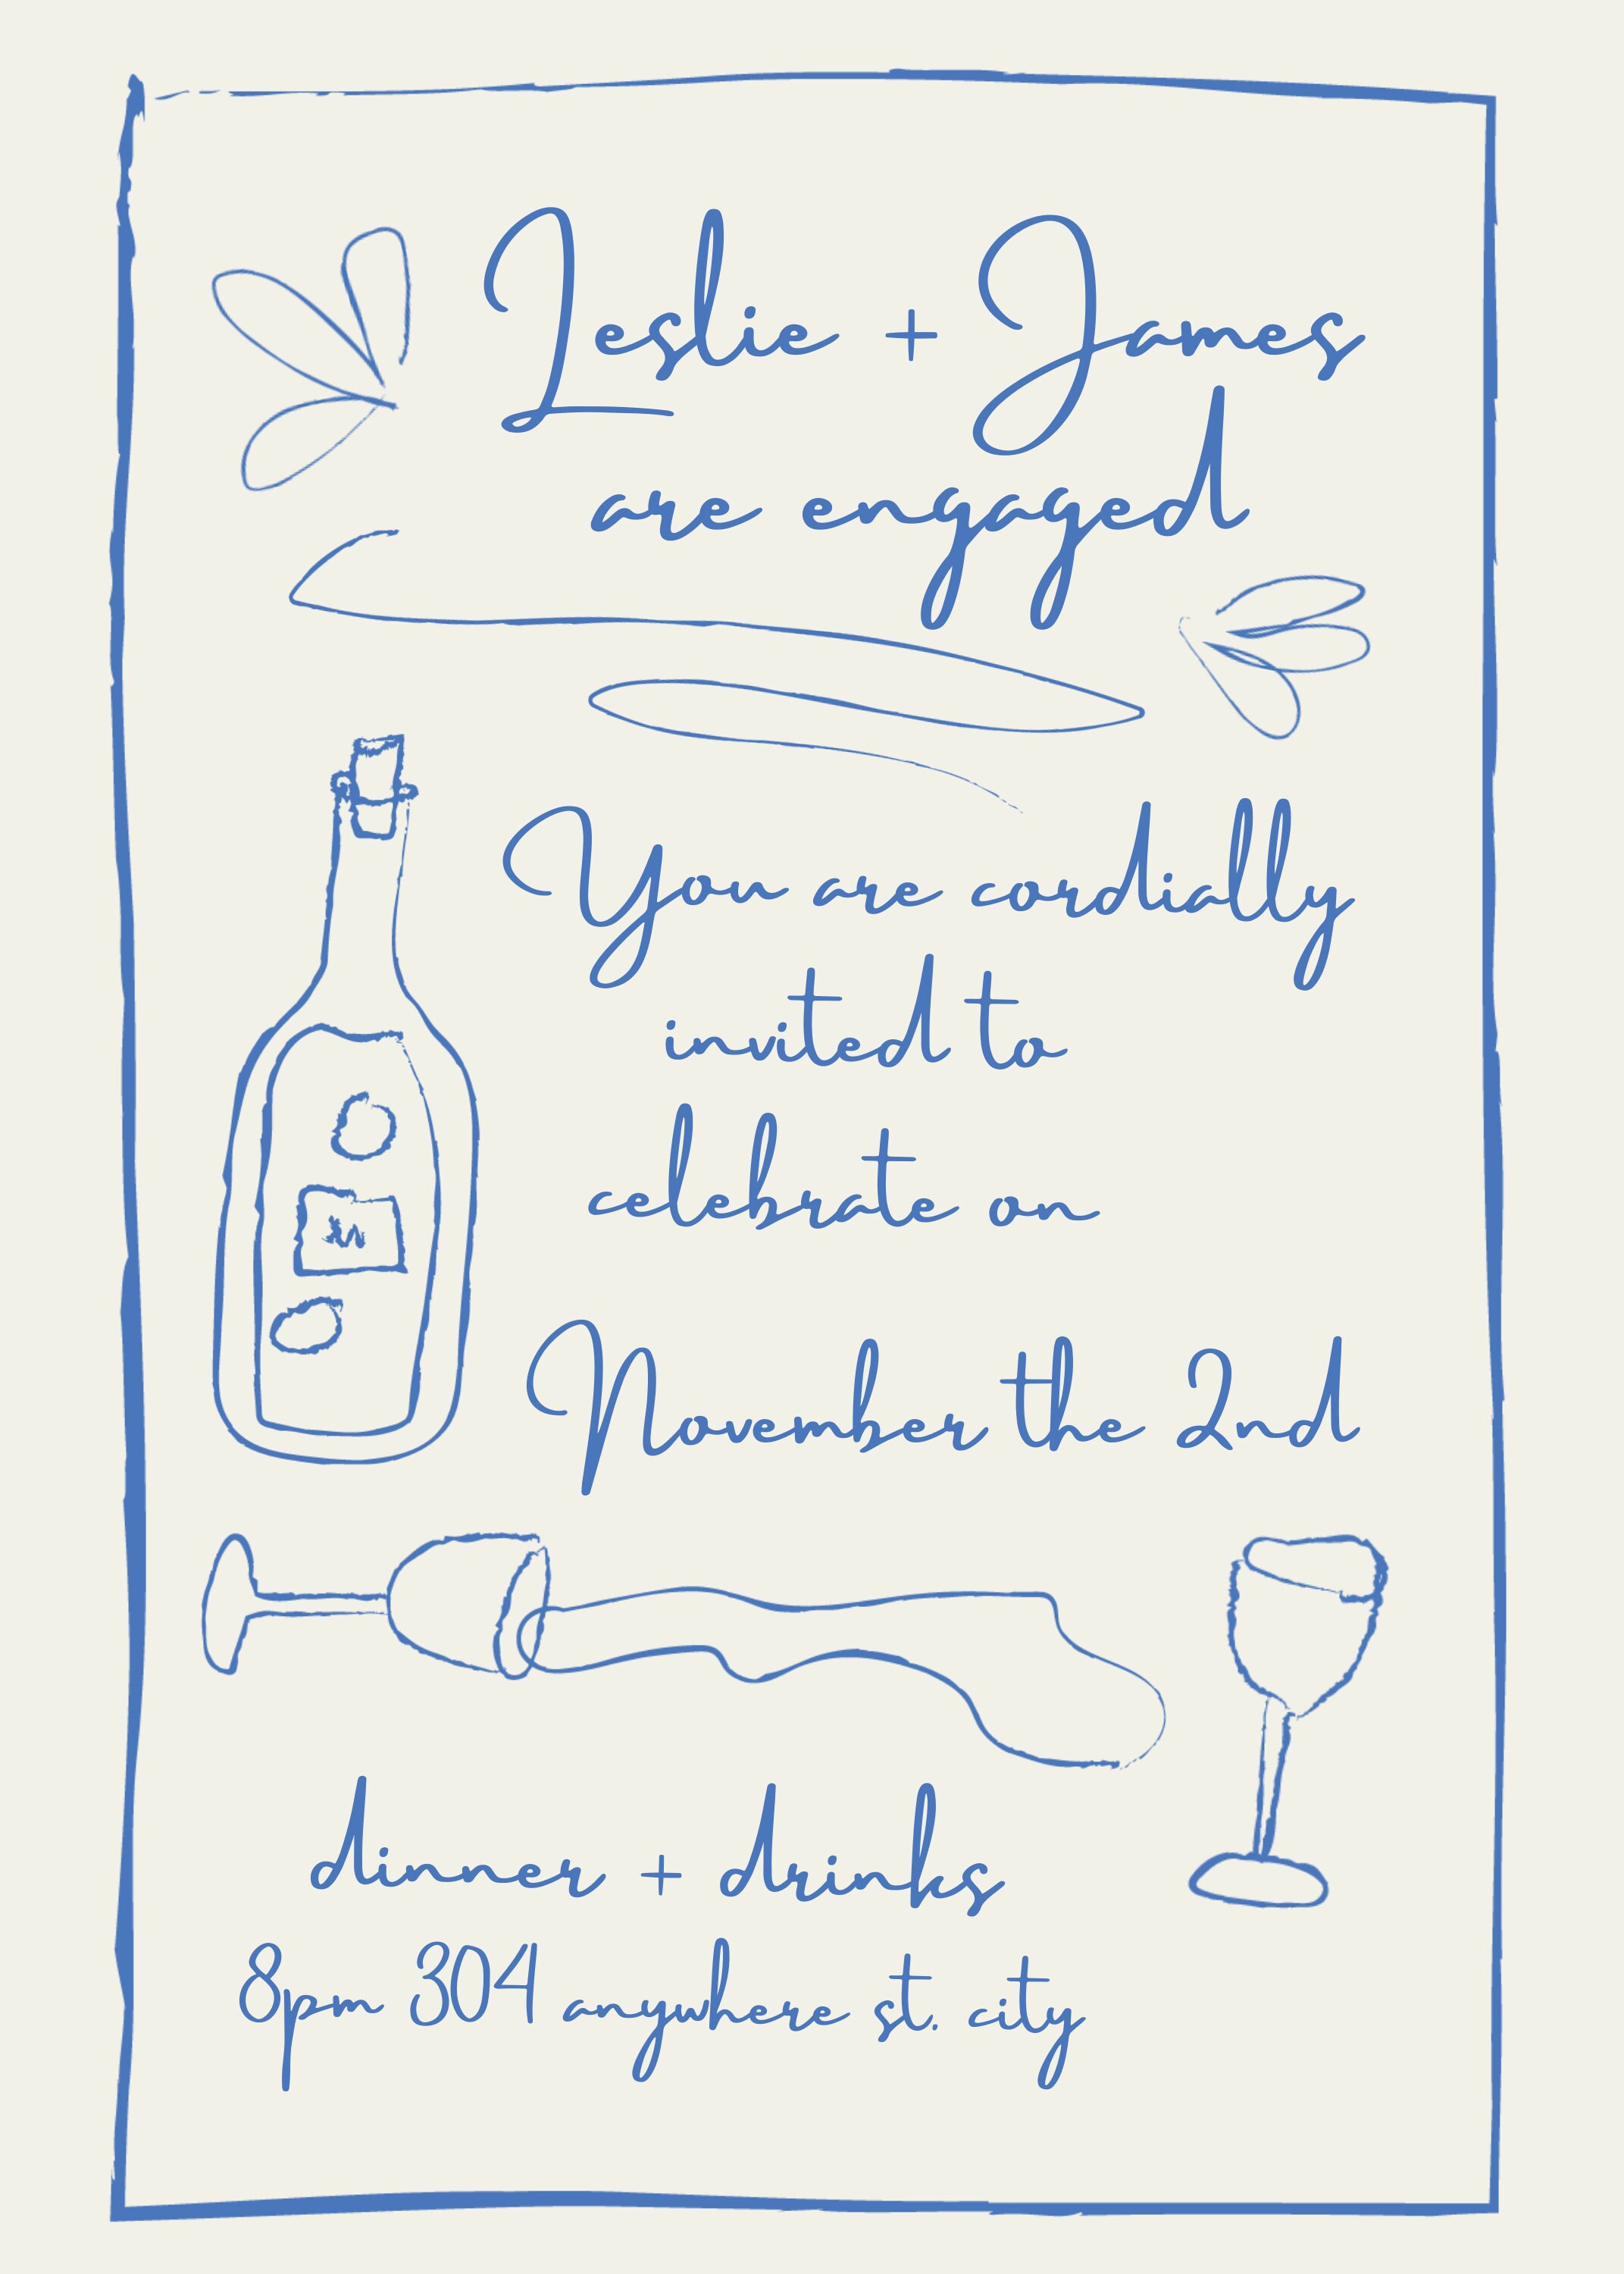 Leslie + James
are engaged
You are cordially
invited to
celebrate on
November the 2nd
dinner + drinks
8pm 304 anywhere st. city